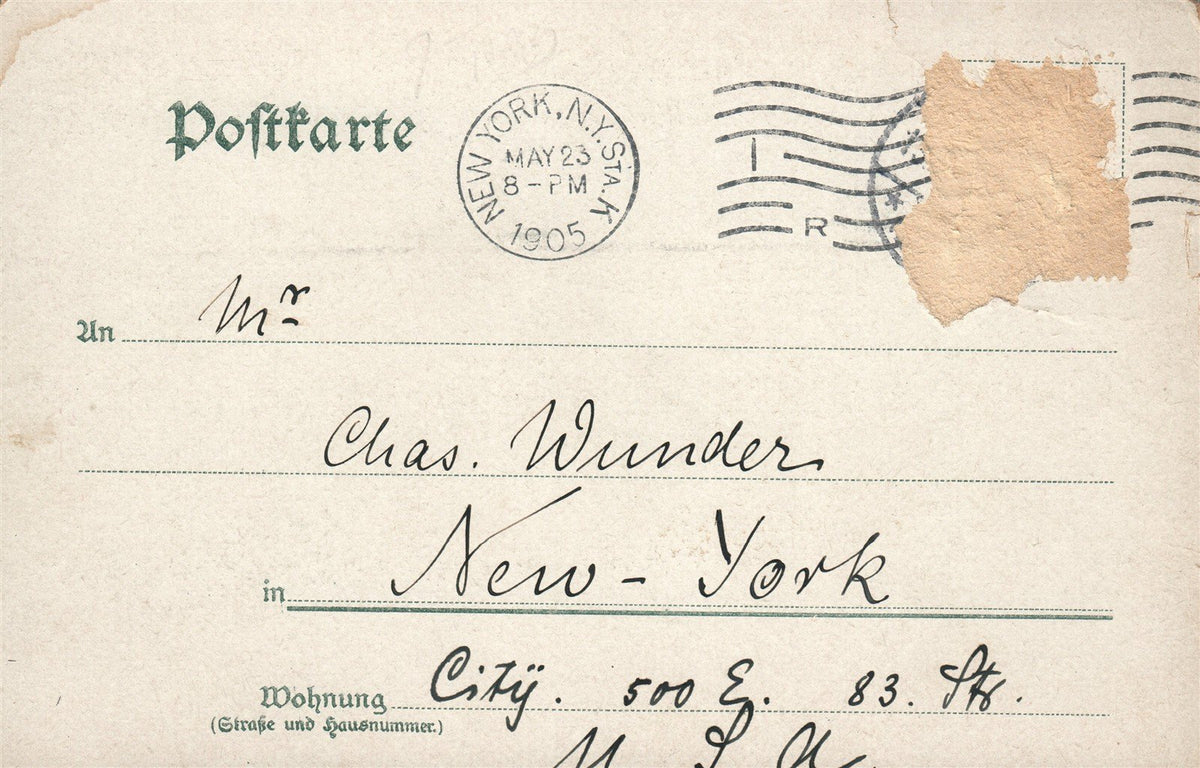 Postkarte
NEW YORK, N.Y. STA. K
MAY 23
8 - PM
1905
1
R
An Mr
Chas. Wunder
in New-York
Wohnung Citÿ. 500 E. 83. Str.
(Straße und Hausnummer.)
U. S. A.